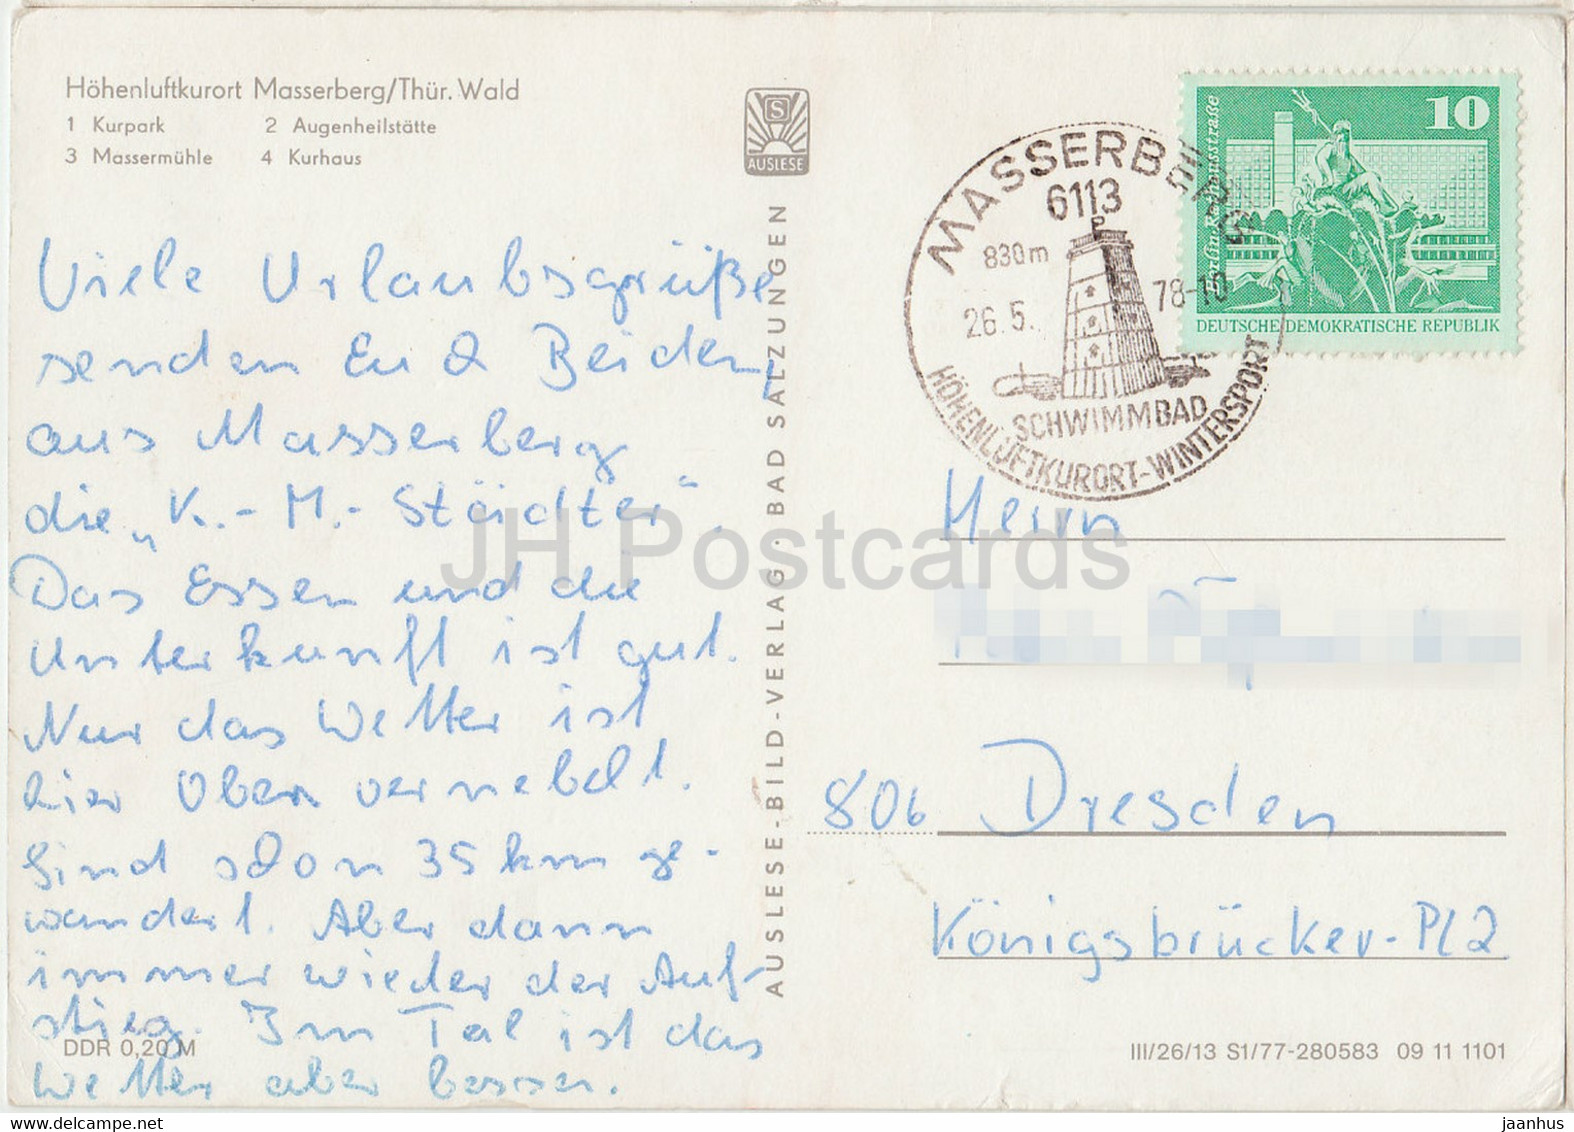 Höhenluftkurort Masserberg/Thür. Wald
1 Kurpark 2 Augenheilstätte
3 Massermühle 4 Kurhaus
S
AUSLESE
Viele Urlaubsgrüße
senden Euch Beiden,
aus Masserberg
die „K.-M.-Städter".
Das Essen und die
Unterkunft ist gut.
Nur das Wetter ist
hier Oben vernebelt.
Sind schon 35 km ge-
wandert. Aber dann
immer wieder der Auf-
stieg. Im Tal ist das
Wetter aber besser.
DDR 0,20 M
AUSLESE-BILD-VERLAG · BAD SALZUNGEN
MASSERBERG
6113
830m
26.5. 78-10
SCHWIMMBAD
HÖHENLUFTKURORT-WINTERSPORT
10
DEUTSCHE DEMOKRATISCHE REPUBLIK
Herrn
806 Dresden
Königsbrücker-Pl 2
III/26/13 S1/77-280583 09 11 1101
JH Postcards
jaanhus — delcampe.net